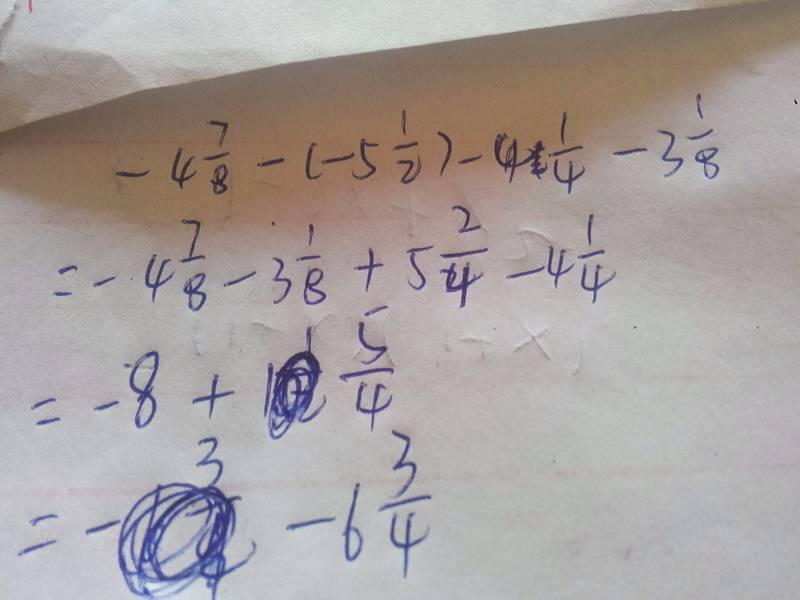 -4 7/8 - (-5 1/2) - 4 1/4 - 3 1/8
= -4 7/8 - 3 1/8 + 5 2/4 - 4 1/4
= -8 + 5/4
= -6 3/4